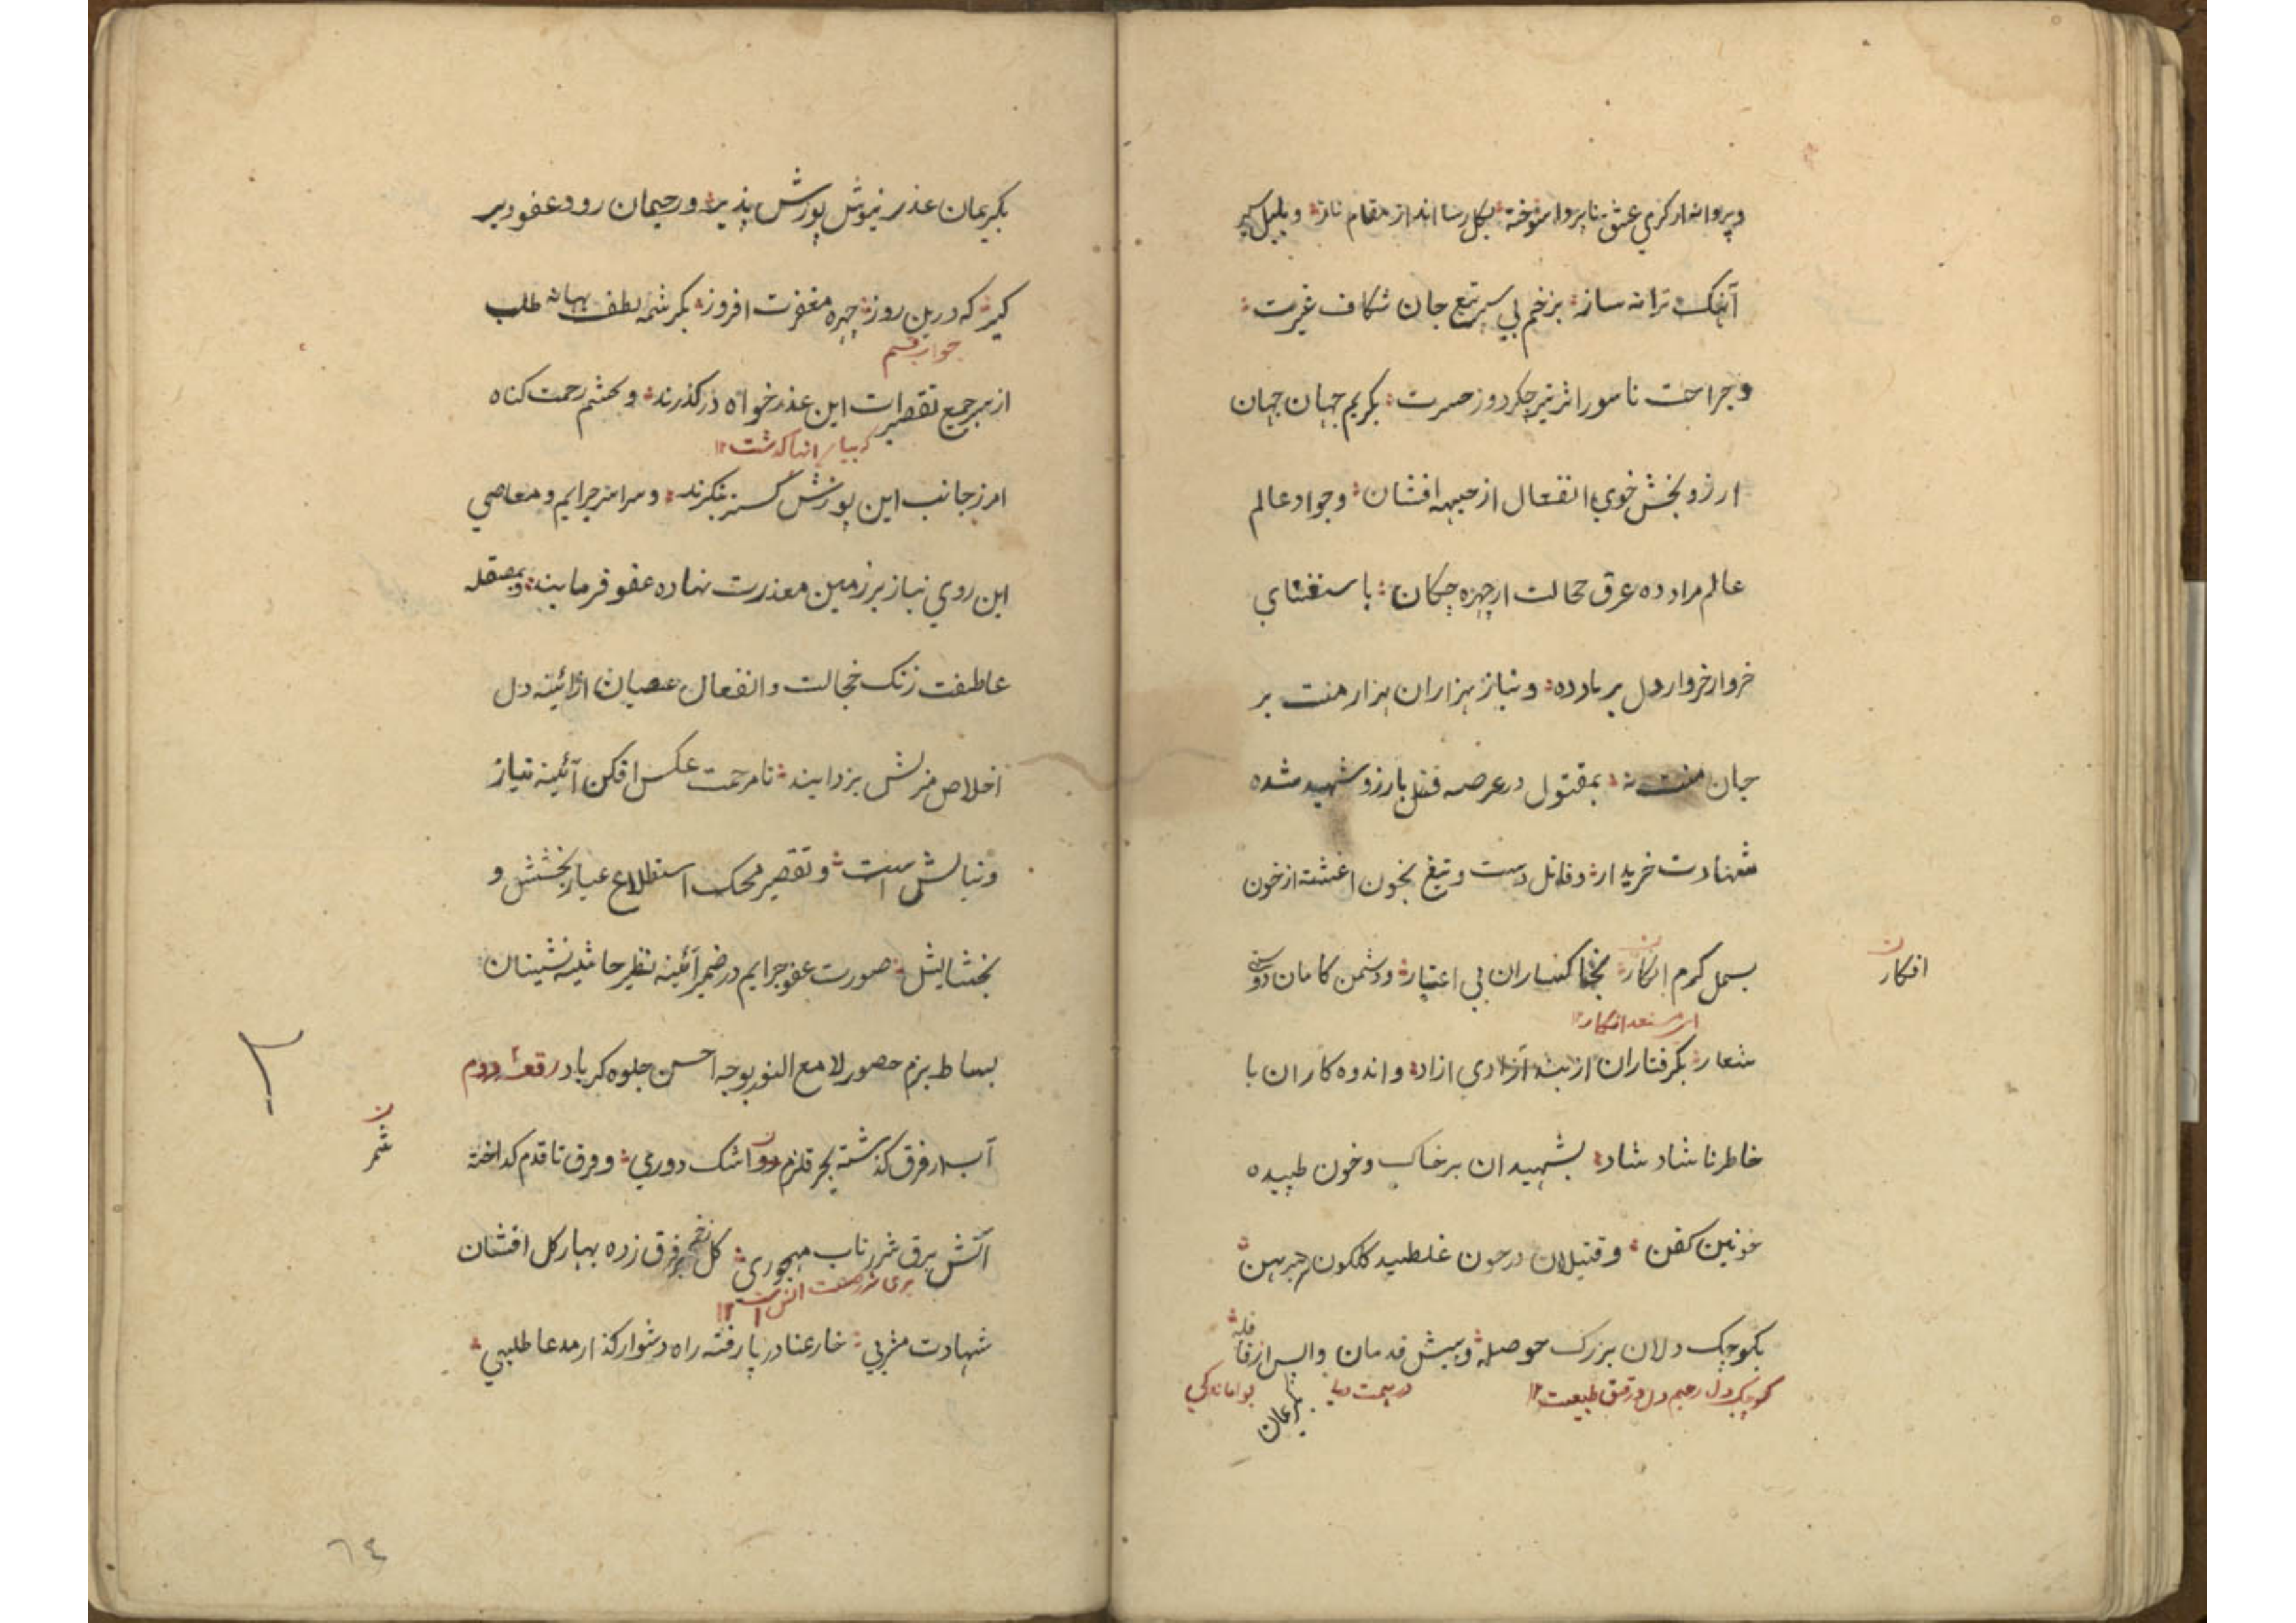 وپروانه از کرمی عشق ناپروا سوخته بکل رسا انداز مقام ناز وبلبل سیر
آهنک ترانه ساز بزخم بی سپر تیغ جان شکاف غیرت
وجراحت ناسور اثر تیر جکر دوز حسرت بکریم جهان جهان
ارزو بخش خوی انفعال از جبهه افشان وجواد عالم
عالم مراد ده عرق خجالت از چهره چکان باستغنای
خروار خروار دل بر باد ده ونیاز هزاران هزار منت بر
جان منت نه بمقتول در عرصه قتل بارزو شهید شده
شهادت خریدار وقاتل دست وتیغ بخون اغشته از خون
بسمل کرم انکار بخاکساران بی اعتبار ودشمن کامان دوستی
ن
افکار
شعار بکرفتاران از بند آزادی ازاد واندوه کاران با
خاطر ناشاد شاد بشهیدان بر خاک وخون طپیده
خونین کفن وقتیلان در خون غلطیده کلکون پیرهن
بکوچک دلان بزرک حوصله وپیش قدمان واپس از قافله
کوچک دل رحیم دل ورقیق طبیعت ۱۲
بکریمان
بکریمان عذر نیوش پوزش پذیر ورحیمان زود عفو دیر
کیر که درین روز چهره مغفرت افروز بکرشمه لطف بهانه طلب
جواب قسم
از سر جمیع تقصیرات این عذر خواه درکذرند وبچشم رحمت کناه
امرز جانب این پوزش کستر بنکرند وسراسر جرایم ومعاصی
این روی نیاز بر زمین معذرت نهاده عفو فرمایند وبمصقله
عاطفت زنک خجالت وانفعال عصیان از ائینه دل
اخلاص منزلش بزدایند تا مرحمت عکس افکن آئینه نیاز
ونیایش است وتقصیر محک استطلاع عیار بخشش و
بخشایش صورت عفو جرایم در ضمیر آئینه نظیر حاشیه نشینان
بساط بزم حضور لامع النور بوجه احسن جلوه کر باد رقعه دوم
۲
آب از فرق کذشته بحر قلزم رو اشک دوری وفرق تا قدم کداخته
ن
آتش برق شرر تاب مهجوری کل زخم بر فرق زده بهار کل افشان
شهادت مشربی خار عنا در پا رفته راه دشوار کذار مدعا طلبی
٦٤